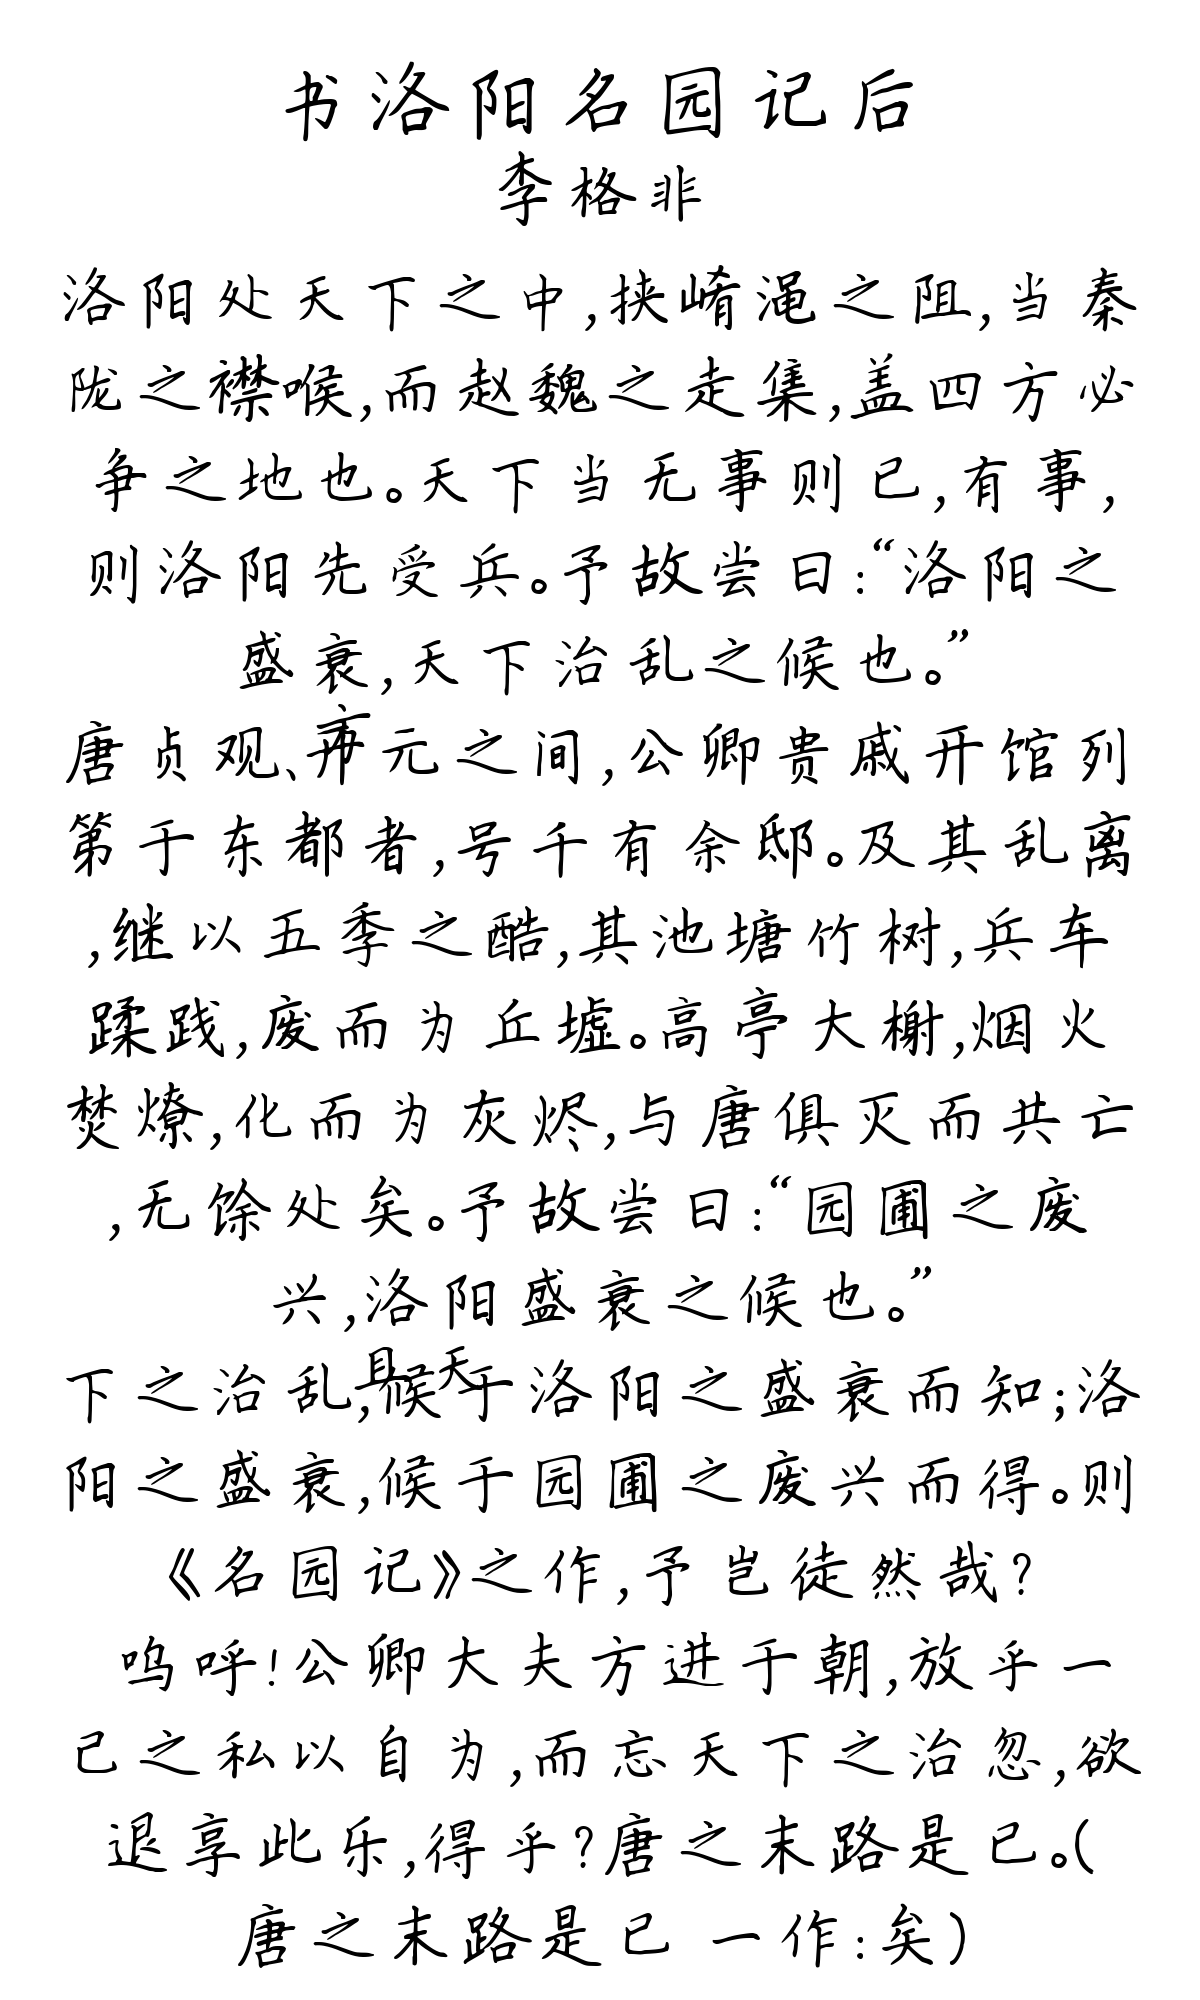 书洛阳名园记后
李格非
洛阳处天下之中,挟崤渑之阻,当秦
陇之襟喉,而赵魏之走集,盖四方必
争之地也。天下当无事则已,有事,
则洛阳先受兵。予故尝曰:“洛阳之
盛衰,天下治乱之候也。”
唐贞观、元之间,公卿贵戚开馆列
第于东都者,号千有余邸。及其乱离
,继以五季之酷,其池塘竹树,兵车
蹂践,废而为丘墟。高亭大榭,烟火
焚燎,化而为灰烬,与唐俱灭而共亡
,无馀处矣。予故尝曰:“园圃之废
兴,洛阳盛衰之候也。”
且天
下之治乱,候于洛阳之盛衰而知;洛
阳之盛衰,候于园圃之废兴而得。则
《名园记》之作,予岂徒然哉?
呜呼!公卿大夫方进于朝,放乎一
己之私以自为,而忘天下之治忽,欲
退享此乐,得乎?唐之末路是已。(
唐之末路是已 一作:矣)